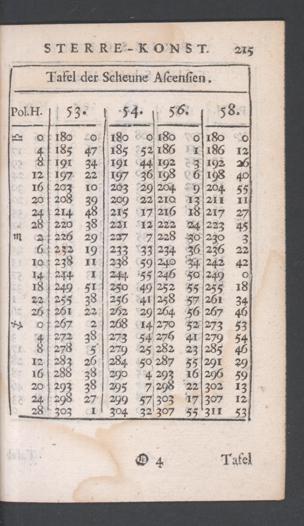 STERRE-KONST. 215
Tafel der Scheune Ascensien.
Pol.H. 53. 54. 56. 58.
♎ 0 180 0 180 0 180 0 180 0
4 185 47 185 52 186 1 186 12
8 191 34 191 44 192 3 192 26
12 197 22 197 36 198 6 198 40
16 203 10 203 29 204 9 204 55
20 208 39 209 22 210 13 211 11
24 214 48 215 17 216 18 217 27
28 220 38 221 12 222 24 223 45
♏ 2 226 29 227 7 228 30 230 3
6 232 19 233 33 234 36 236 22
10 238 11 238 59 240 34 242 42
14 244 1 244 55 246 50 249 0
18 249 51 250 49 252 55 255 18
22 255 38 256 41 258 57 261 34
26 261 22 262 29 264 56 267 46
♐ 0 267 2 268 14 270 52 273 53
4 272 38 273 54 276 41 279 54
8 278 5 279 25 282 23 285 46
12 283 26 284 50 287 55 291 29
16 288 38 290 4 293 16 296 59
20 293 38 295 7 298 22 302 13
24 298 27 299 57 303 17 307 12
28 303 1 304 32 307 55 311 53
4 Tafel